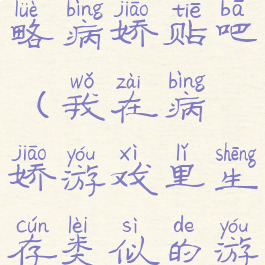 lüè bìng jiāo tiē bā
略病娇贴吧
wǒ zài bìng
(我在病
jiāo yóu xì lǐ shēng
娇游戏里生
cún lèi sì de yóu
存类似的游